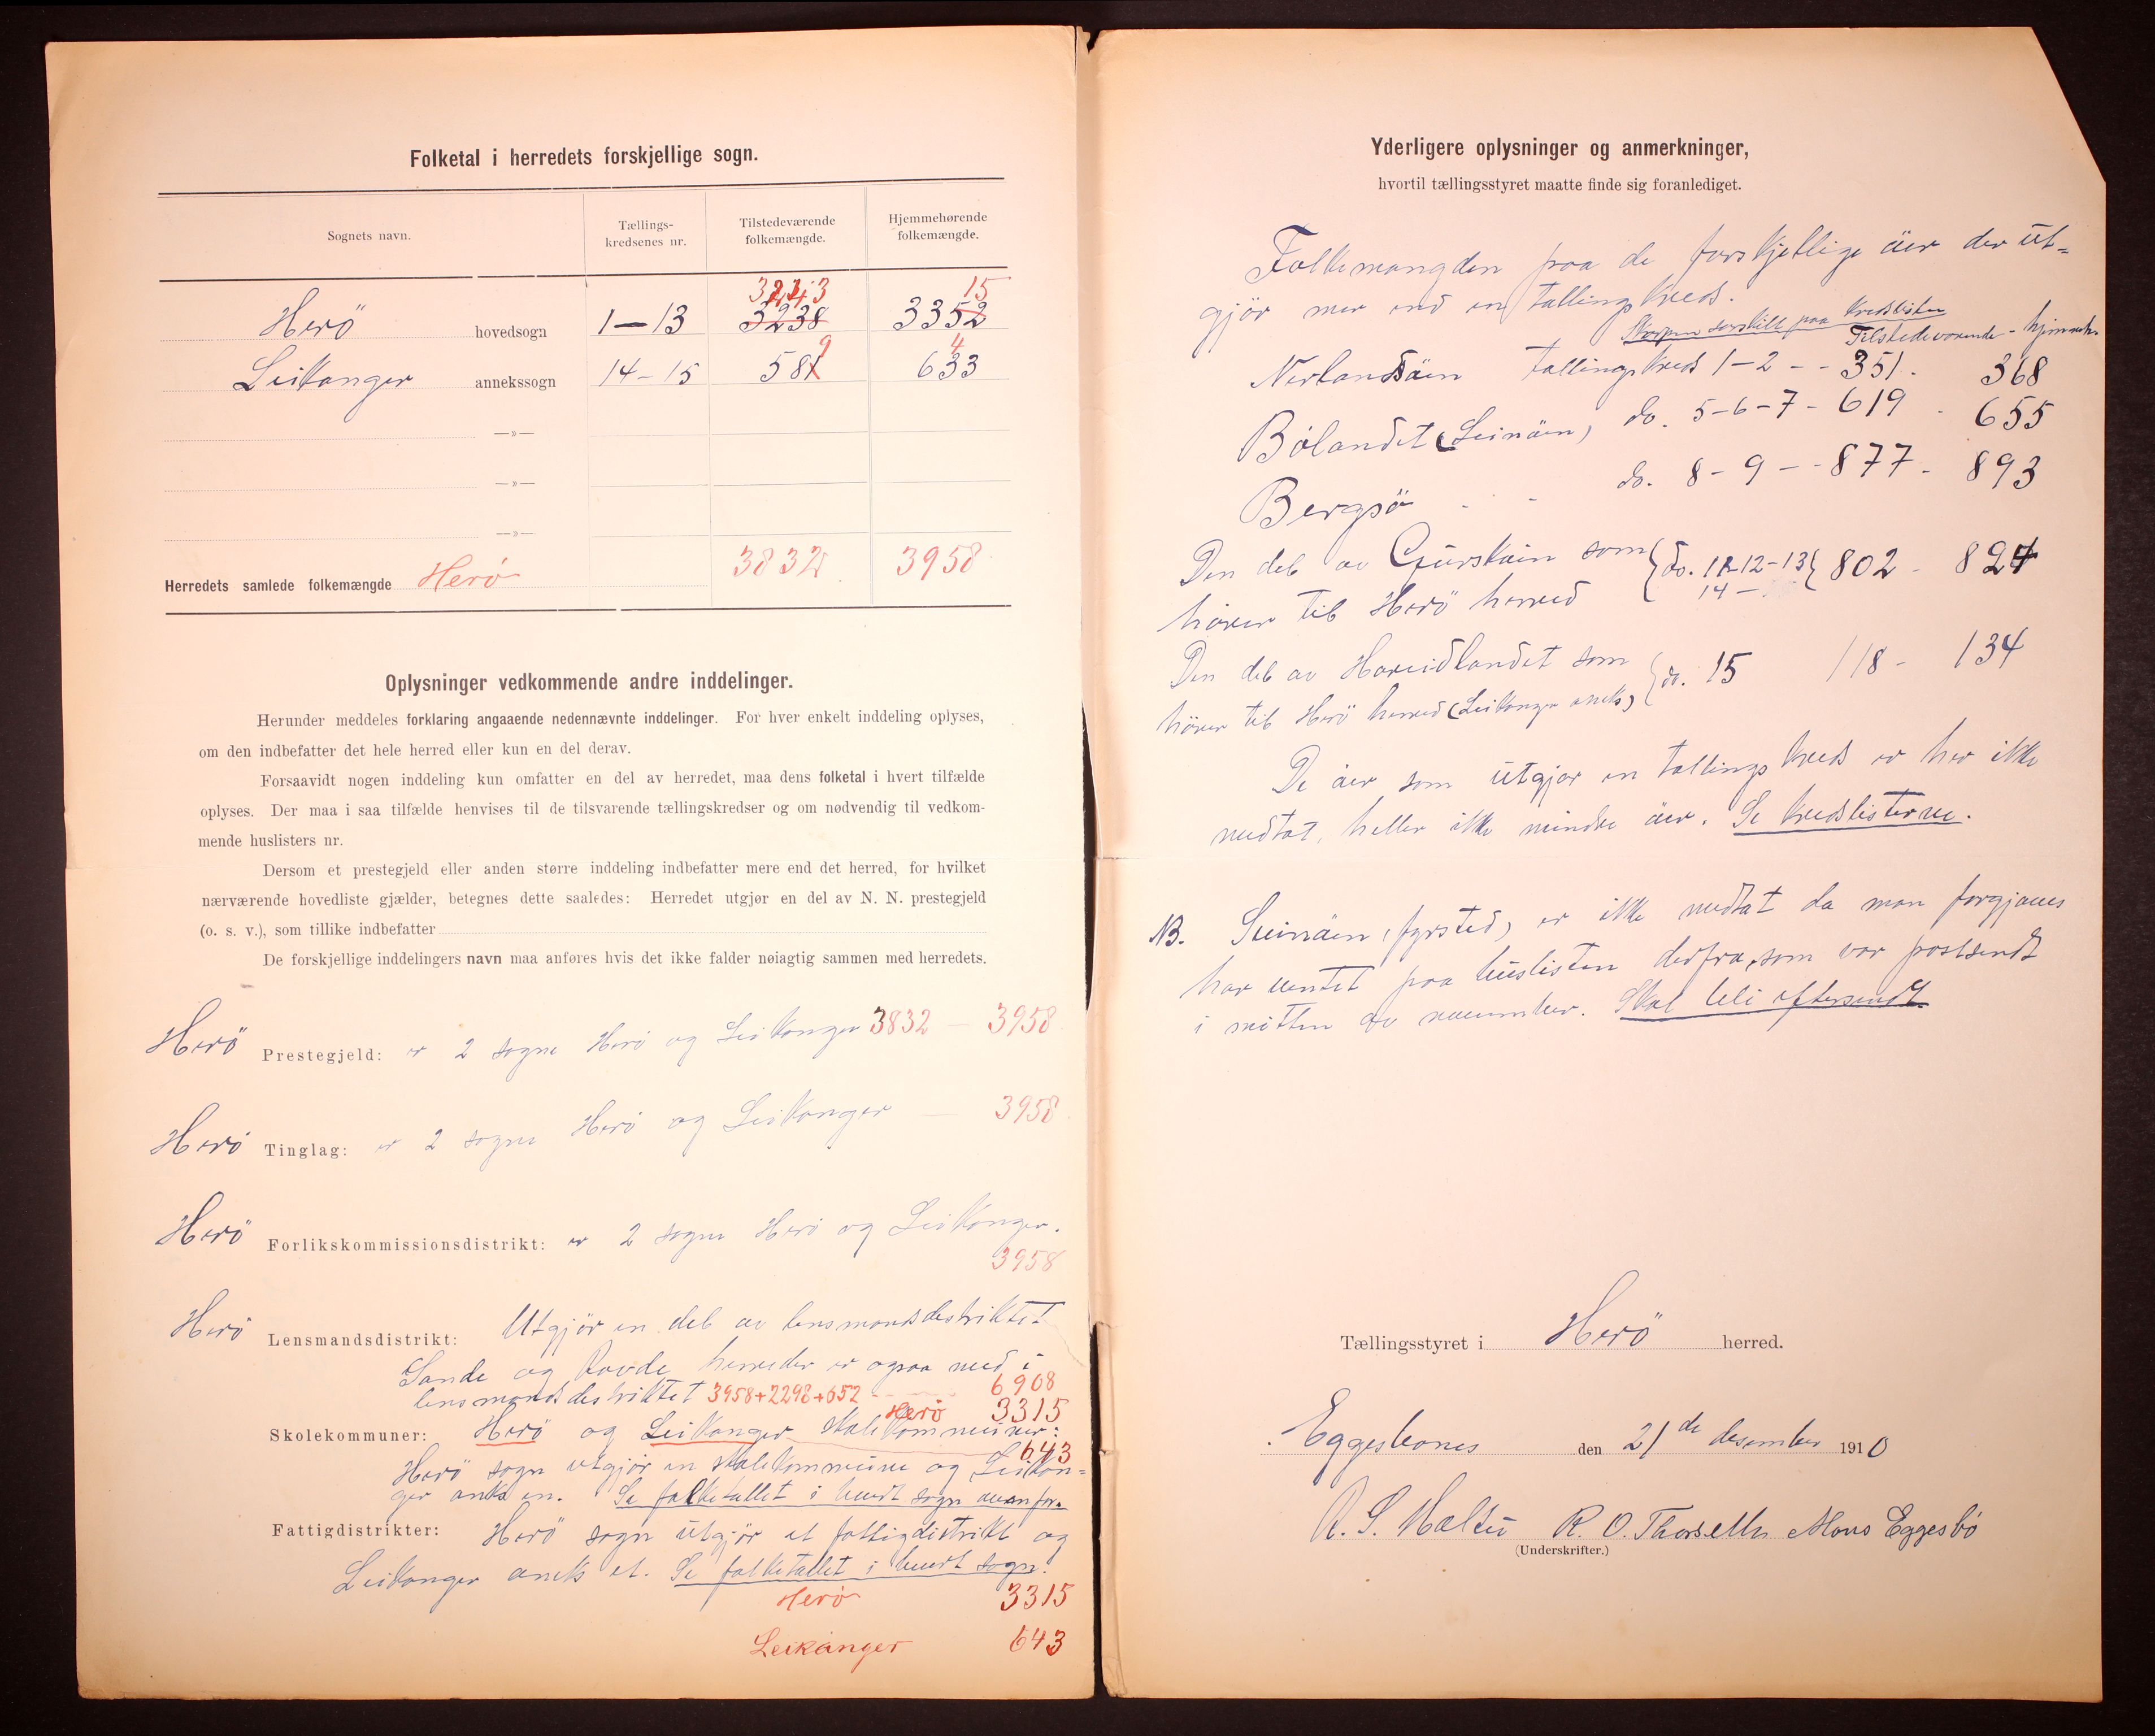 Folketal i herredets forskjellige sogn.
Sognets navn.
Tællings-
kredsenes nr.
Tilstedeværende
folkemængde.
Hjemmehørende
folkemængde.
3243 15
Herö hovedsogn 1—13 3238 3352
9 4
Leikanger annekssogn 14-15 581 633
—»—
—»—
—»—
Herredets samlede folkemængde Herö 3832 3958
Oplysninger vedkommende andre inddelinger.
Herunder meddeles forklaring angaaende nedennævnte inddelinger. For hver enkelt inddeling oplyses,
om den indbefatter det hele herred eller kun en del derav.
Forsaavidt nogen inddeling kun omfatter en del av herredet, maa dens folketal i hvert tilfælde
oplyses. Der maa i saa tilfælde henvises til de tilsvarende tællingskredser og om nødvendig til vedkom-
mende huslisters nr.
Dersom et prestegjeld eller anden større inddeling indbefatter mere end det herred, for hvilket
nærværende hovedliste gjælder, betegnes dette saaledes: Herredet utgjør en del av N. N. prestegjeld
(o. s. v.), som tillike indbefatter
De forskjellige inddelingers navn maa anføres hvis det ikke falder nøiagtig sammen med herredets.
Herö Prestegjeld: er 2 sogne Herö og Leikanger 3832 — 3958
Herö Tinglag: er 2 sogne Herö og Leikanger — 3958
Herö Forlikskommissionsdistrikt: er 2 sogne Herö og Leikanger.
3958
Herö Lensmandsdistrikt: Utgjör en del av lensmandsdestriktet
Sande og Rovde herreder er ogsaa med i
lensmandsdestriktet 3958+2298+652 6908
Herö 3315
Skolekommuner: Herö og Leikanger skolekommuner:
643
Herö sogn utgjör en skolekommune og Leikan=
ger aneks en. Se folketallet i hvert sogn ovenfor.
Fattigdistrikter: Herö sogn utgjör et fattigdistrikt og
Leikanger aneks et. Se folketallet i hvert sogn.
Herö 3315
Leikanger 643
Yderligere oplysninger og anmerkninger,
hvortil tællingsstyret maatte finde sig foranlediget.
Folkemængden paa de forskjellige öier der ut=
gjör mer end en tællingskreds.
Skorpen særskilt paa kredslisten
Tilstedeværende - hjemmeh.
Nerlandsöien tællingskreds 1-2 -- 351. 368
Bölandet (Leinöen) do. 5-6-7 - 619 - 655
Bergsö - - do. 8-9 -- 877 - 893
Den del av Gursköien som do. 11-12-13 802 - 824
hörer til Herö herred 14 -
Den del av Hareidlandet som do. 15 118 - 134
hörer til Herö herred (Leikanger aneks)
De öier som utgjör en tællingskreds er her ikke
medtat, heller ikke mindre öier. Se kredslisterne.
NB. Svinöien (fyrsted) er ikke medtat da man forgjæves
har ventet paa huslisten derfra, som var postsendt
i midten av november. Skal bli eftersendt.
Tællingsstyret i Herö herred.
Eggesbones den 21de desember 1910
R. O. Thorseth Mons Eggesbö
(Underskrifter.)